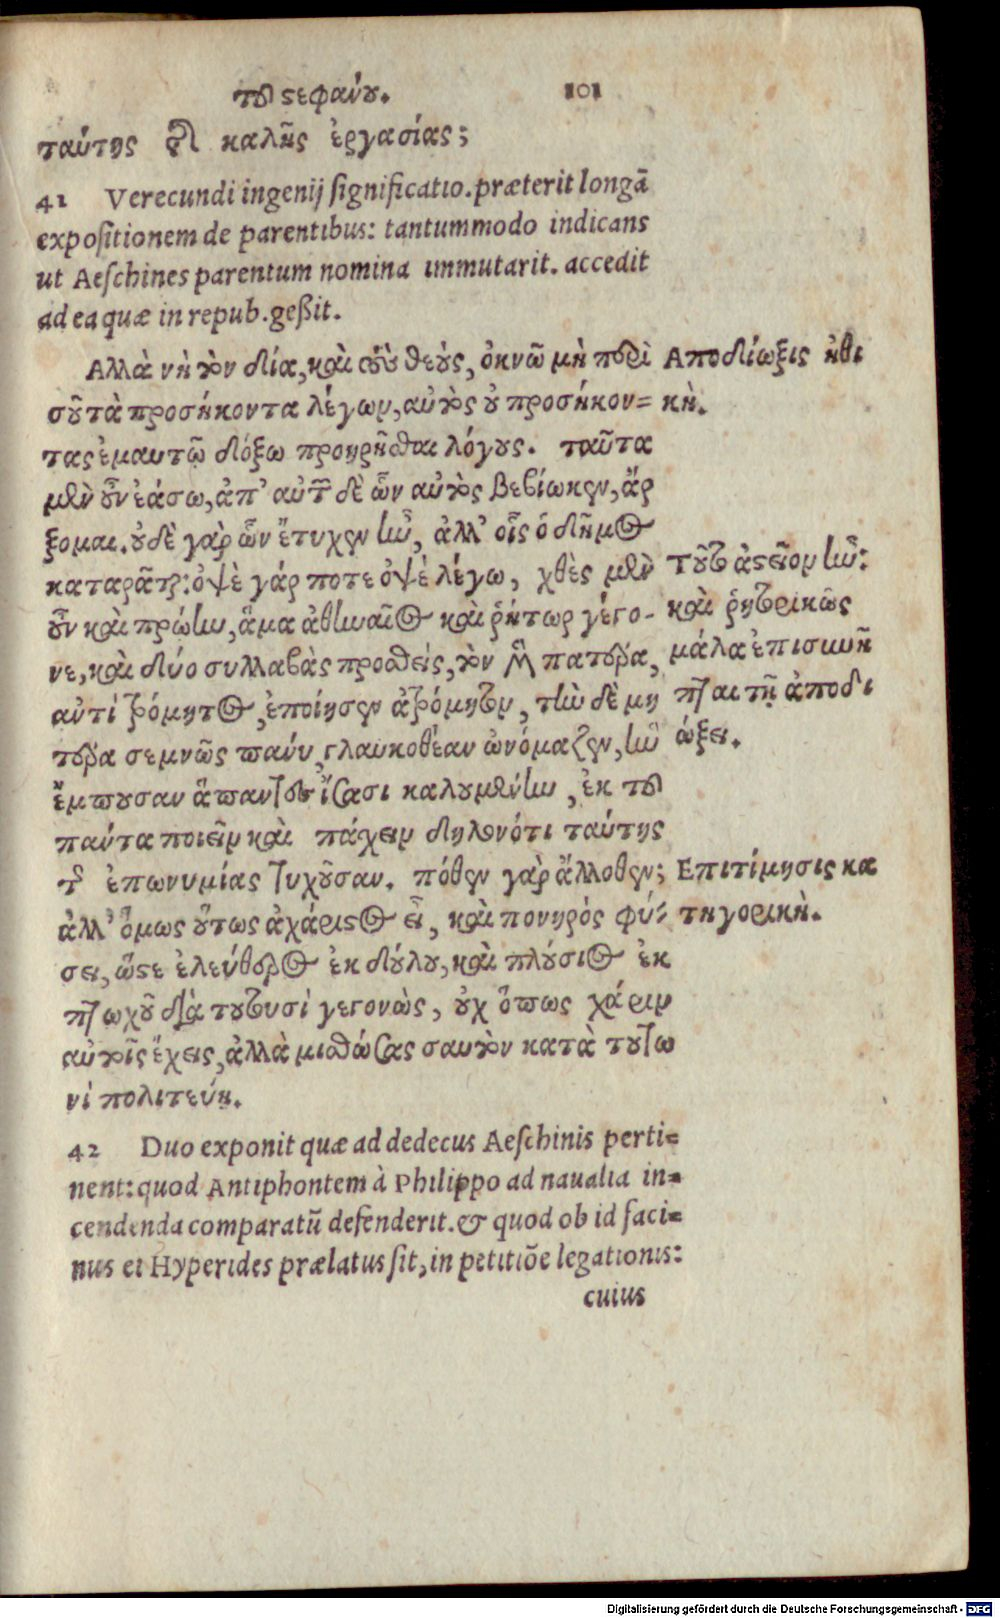 τοῦ στεφάνου. 101
ταύτης τῆς καλῆς ἐργασίας;
41 Verecundi ingenij ſignificatio. præterit longā
expoſitionem de parentibus: tantummodo indicans
ut Aeſchines parentum nomina immutarit. accedit
ad ea quæ in repub. geßit.
Αλλὰ νὴ τὸν δία, καὶ τοὺς θεοὺς, ὀκνῶ μὴ περὶ
σοῦ τὰ προσήκοντα λέγων, αὐτὸς οὐ προσήκον=
τας ἐμαυτῷ δόξω προῃρῆσθαι λόγους. ταῦτα
μὲν οὖν ἐάσω, ἀπ' αὐτῶν δὲ ὧν αὐτὸς βεβίωκεν, ἄρ
ξομαι. οὐδὲ γὰρ ὧν ἔτυχεν ἦν, ἀλλ' οἷς ὁ δῆμος
καταρᾶται: ὀψὲ γάρ ποτε ὀψὲ λέγω, χθὲς μὲν
οὖν καὶ πρώην, ἅμα ἀθηναῖος καὶ ῥήτωρ γέγο-
νε, καὶ δύο συλλαβὰς προσθεὶς, τὸν μὲν πατέρα,
αὐτὶ τρόμητος, ἐποίησεν ἀτρόμητον, τὴν δὲ μη
τέρα σεμνῶς πάνυ, γλαυκοθέαν ὠνόμαζεν, ἣν
ἔμπουσαν ἅπαντες ἴσασι καλουμένην, ἐκ τοῦ
πάντα ποιεῖν καὶ πάχειν δηλονότι ταύτης
τῆς ἐπωνυμίας τυχοῦσαν. πόθεν γὰρ ἄλλοθεν;
ἀλλ' ὅμως οὕτως ἀχάριστος εἶ, καὶ πονηρὸς φύ=
σει, ὥστε ἐλεύθερος ἐκ δούλου, καὶ πλούσιος ἐκ
πτωχοῦ διὰ τουτουσὶ γεγονὼς, οὐχ ὅπως χάριν
αὐτοῖς ἔχεις, ἀλλὰ μισθώσας σαυτὸν κατὰ τουτω
νὶ πολιτεύῃ.
Αποδίωξις ἠθι
κὴ.
τοῦτο ἀστεῖον ἦν:
καὶ ῥητορικῶς
μάλα ἐπισυνῆ
πται τῇ ἀποδι
ώξει.
Επιτίμησις κα
τηγορικὴ.
42 Duo exponit quæ ad dedecus Aeſchinis perti=
nent: quod Antiphontem à Philippo ad naualia in=
cendenda comparatũ defenderit. & quod ob id faci=
nus ei Hyperides prælatus ſit, in petitiõe legationis:
cuius
Digitalisierung gefördert durch die Deutsche Forschungsgemeinschaft - DFG